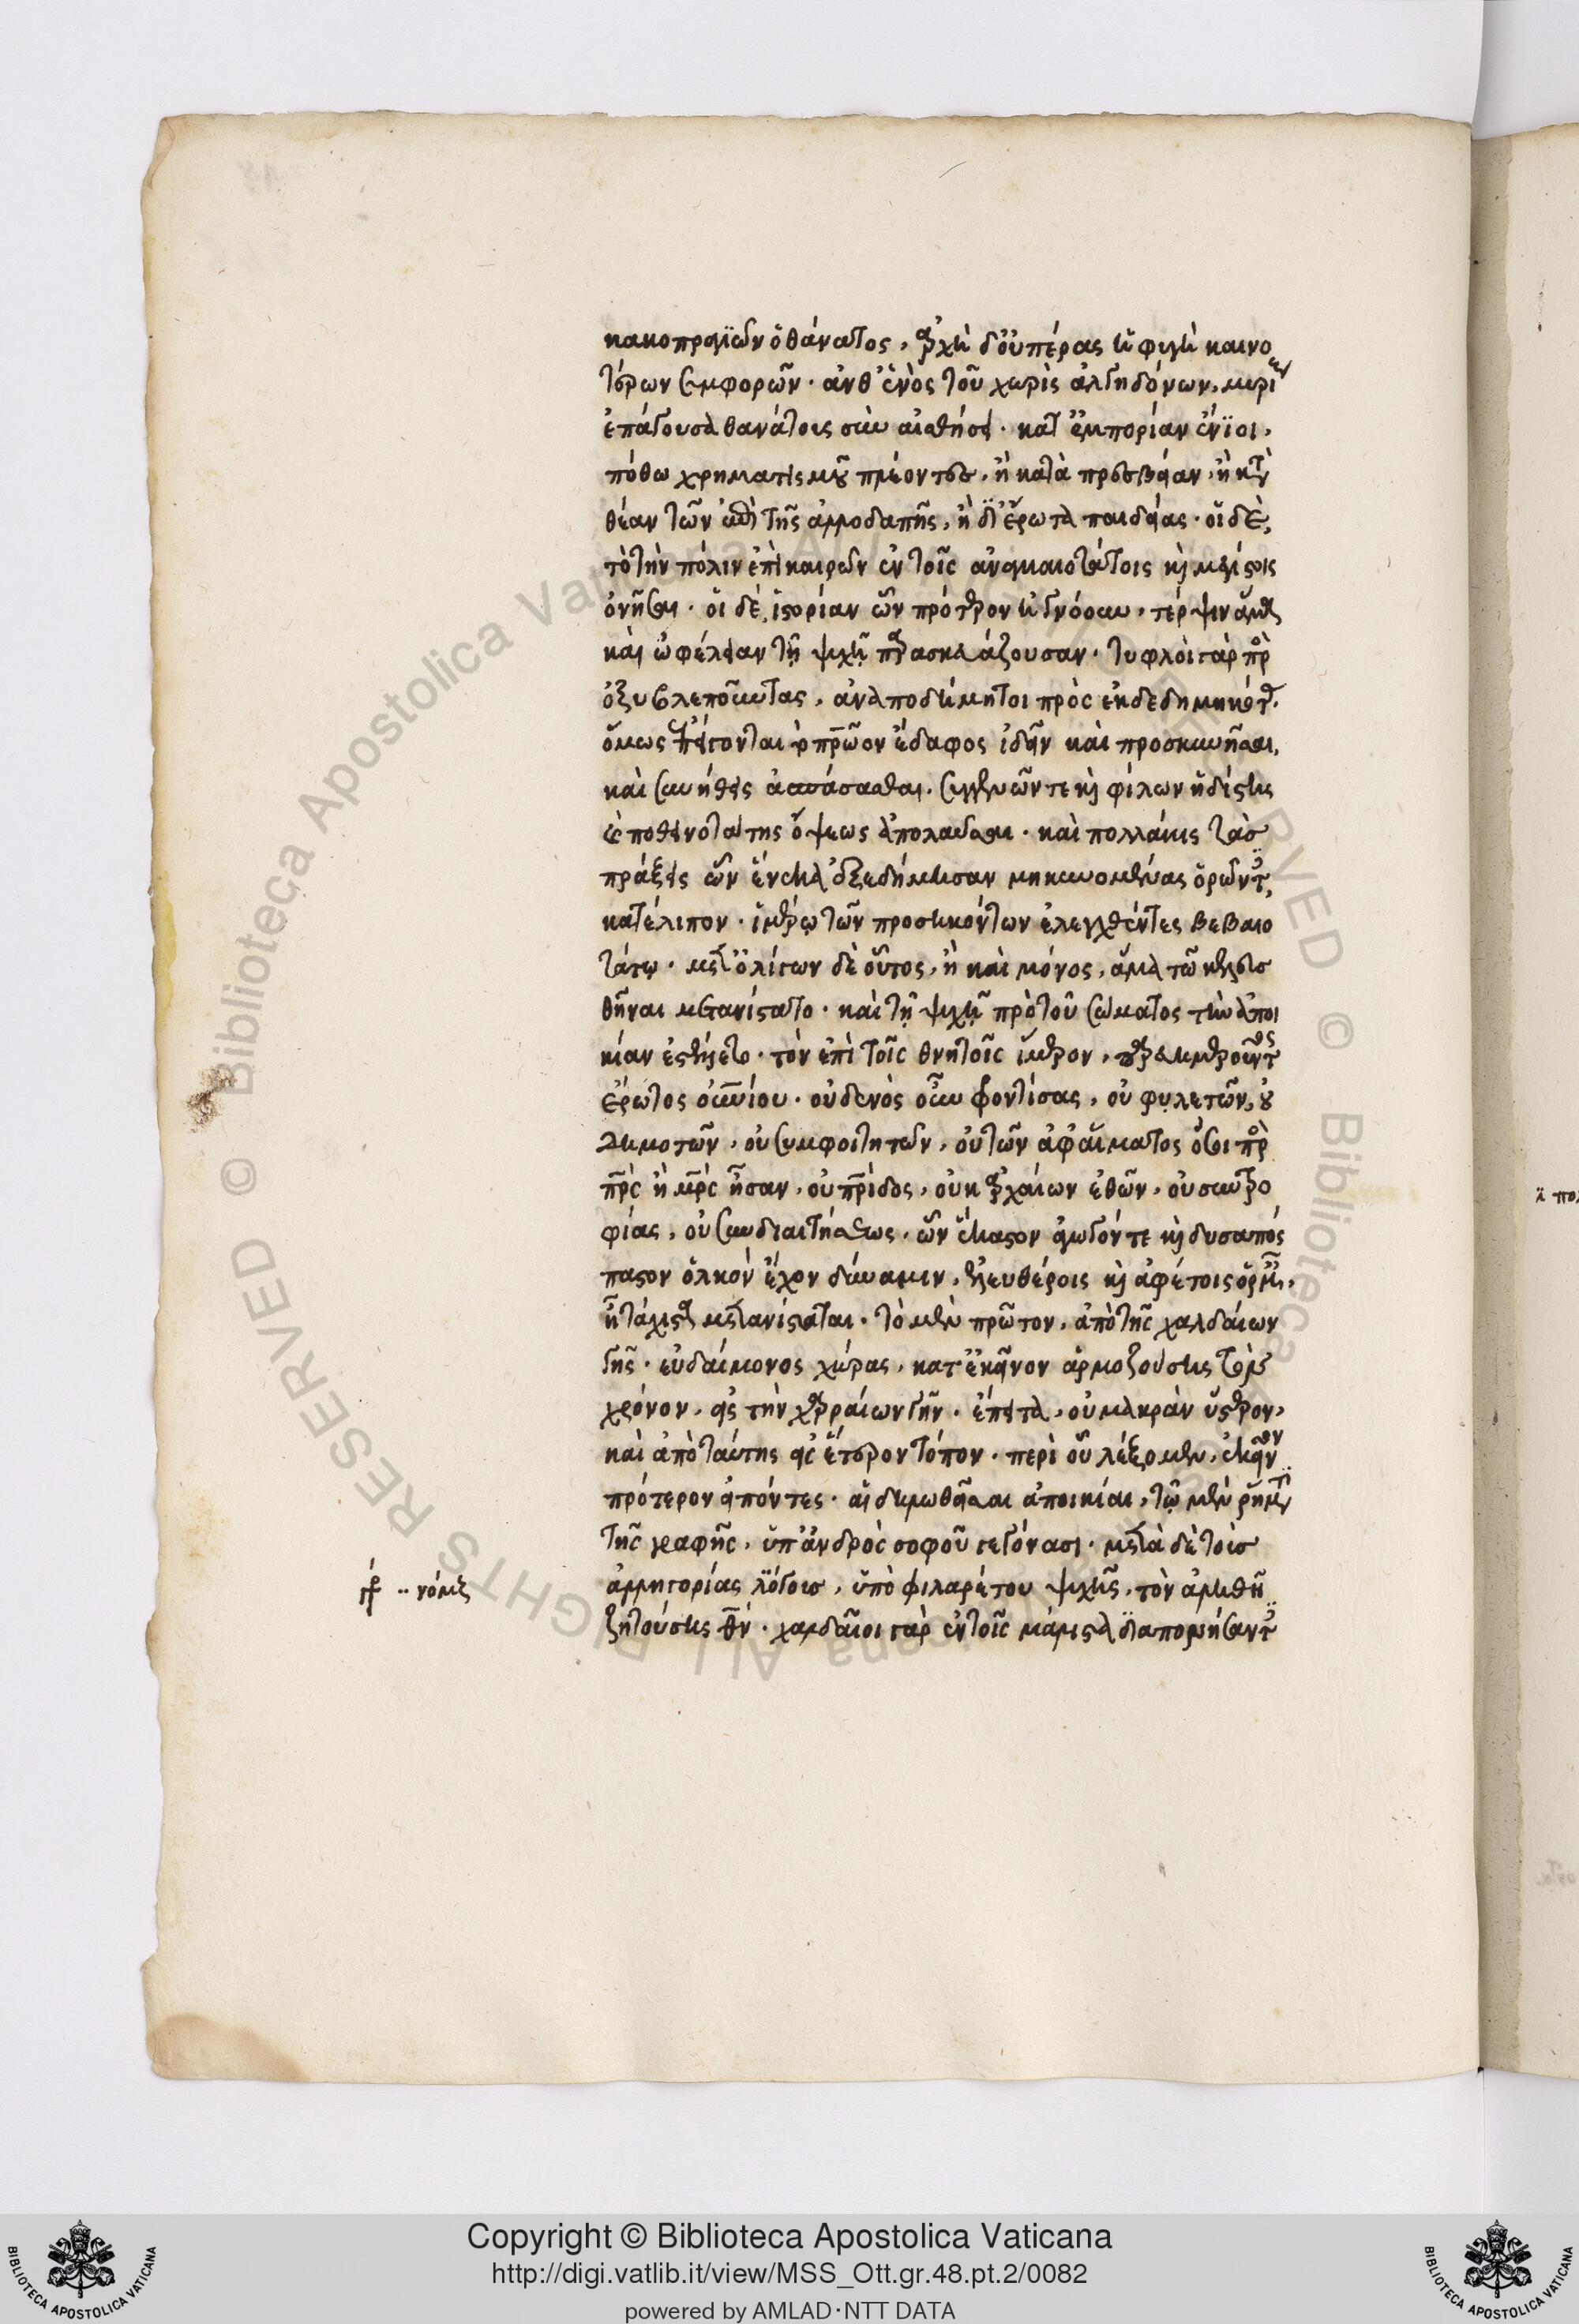 κακοπραγιῶν ὁ θάνατος, ἀρχὴ δ' οὐ πέρας ἡ φυγὴ καινο
τέρων συμφορῶν · ἀνθ' ἑνὸς τοῦ χωρὶς ἀλγηδόνων, μυρίους
ἐπάγουσα θανάτους σὺν αἰσθήσει · κατ' ἐμπορίαν ἔνιοι,
πόθω χρηματισμοῦ πλέοντες, ἢ κατὰ πρεσβείαν, ἢ κατὰ
θέαν τῶν ἐπὶ τῆς ἀλλοδαπῆς, ἢ δι' ἔρωτα παιδείας · οἱ δὲ,
τὸ τὴν πόλιν ἐπὶ καιρῶν ἐν τοῖς ἀναγκαιοτάτοις καὶ μεγίστοις
ὀνῆσαι · οἱ δὲ, ἱστορίαν ὧν πρότερον ἠγνόουν, τέρψιν ἅμα
καὶ ὠφέλειαν τῇ ψυχῇ παρασκευάζουσαν · τυφλοὶ γὰρ παρὰ
ὀξυβλεποῦντας, ἀναποδήμητοι πρὸς ἐκδεδημηκότας ·
ὅμως ἐπείγονται τὸ πατρῶον ἔδαφος ἰδεῖν καὶ προσκυνῆσαι,
καὶ συνήθεις ἀσπάσασθαι · συγγενῶν τε καὶ φίλων ἡδίστης
καὶ ποθεινοτάτης ὄψεως ἀπολαῦσαι · καὶ πολλάκις τὰς
πράξεις ὧν ἕνεκα ἐξεδήμησαν μηκυνομένας ὁρῶντες,
κατέλιπον · ἱμέρῳ τῶν προσηκόντων ἑλεγχθέντες βεβαιο
τάτῳ · μετ' ὀλίγων δὲ οὗτος, ἢ καὶ μόνος, ἅμα τῶ κελευσ
θῆναι μετανίστατο · καὶ τῇ ψυχῇ πρὸ τοῦ σώματος τὴν ἀποι
κίαν ἐστέλλετο · τὸν ἐπὶ τοῖς θνητοῖς ἵμερον, παρευημεροῦντος
ἔρωτος οὐρανίου · οὐδενὸς οὖν φροντίσας, οὐ φυλετῶν, οὐ
δημοτῶν, οὐ συμφοιτητῶν, οὐ τῶν ἀφ' αἵματος ὅσοι πρὸς
πατρὸς ἢ μητρὸς ἦσαν, οὐ πατρίδος, οὐκ ἀρχαίων ἐθῶν, οὐ συντρο
φίας, οὐ συνδιαιτήσεως, ὧν ἕκαστον ἀγωγόν τε καὶ δυσαπόσ
παστον ὁλκὸν ἔχον δύναμιν, ἐλευθέροις καὶ ἀφέτοις ὁρμαῖς,
ᾗ τάχιστα μετανίσταται · τὸ μὲν πρῶτον, ἀπὸ τῆς χαλδαίων
γῆς · εὐδαίμονος χώρας, κατ' ἐκεῖνον ἁρμοζούσης τὸν
χρόνον, εἰς τὴν χαρραίων γῆν · ἔπειτα, οὐ μακρὰν ὕστερον,
καὶ ἀπὸ ταύτης εἰς ἕτερον τόπον · περὶ οὗ λέξομεν, ἐκεῖνον
πρότερον εἰπόντες · αἱ δηλωθεῖσαι ἀποικίαι, τῷ μὲν ῥήματι
τῆς γραφῆς, ὑπ' ἀνδρὸς σοφοῦ γεγόνασι · μετὰ δὲ τοὺς
ἀλληγορίας λόγους, ὑπὸ φιλαρέτου ψυχῆς, τὸν ἀληθῆ
ζητούσης θεόν · χαλδαῖοι γὰρ ἐν τοῖς μάλιστα διαπονήσαντες